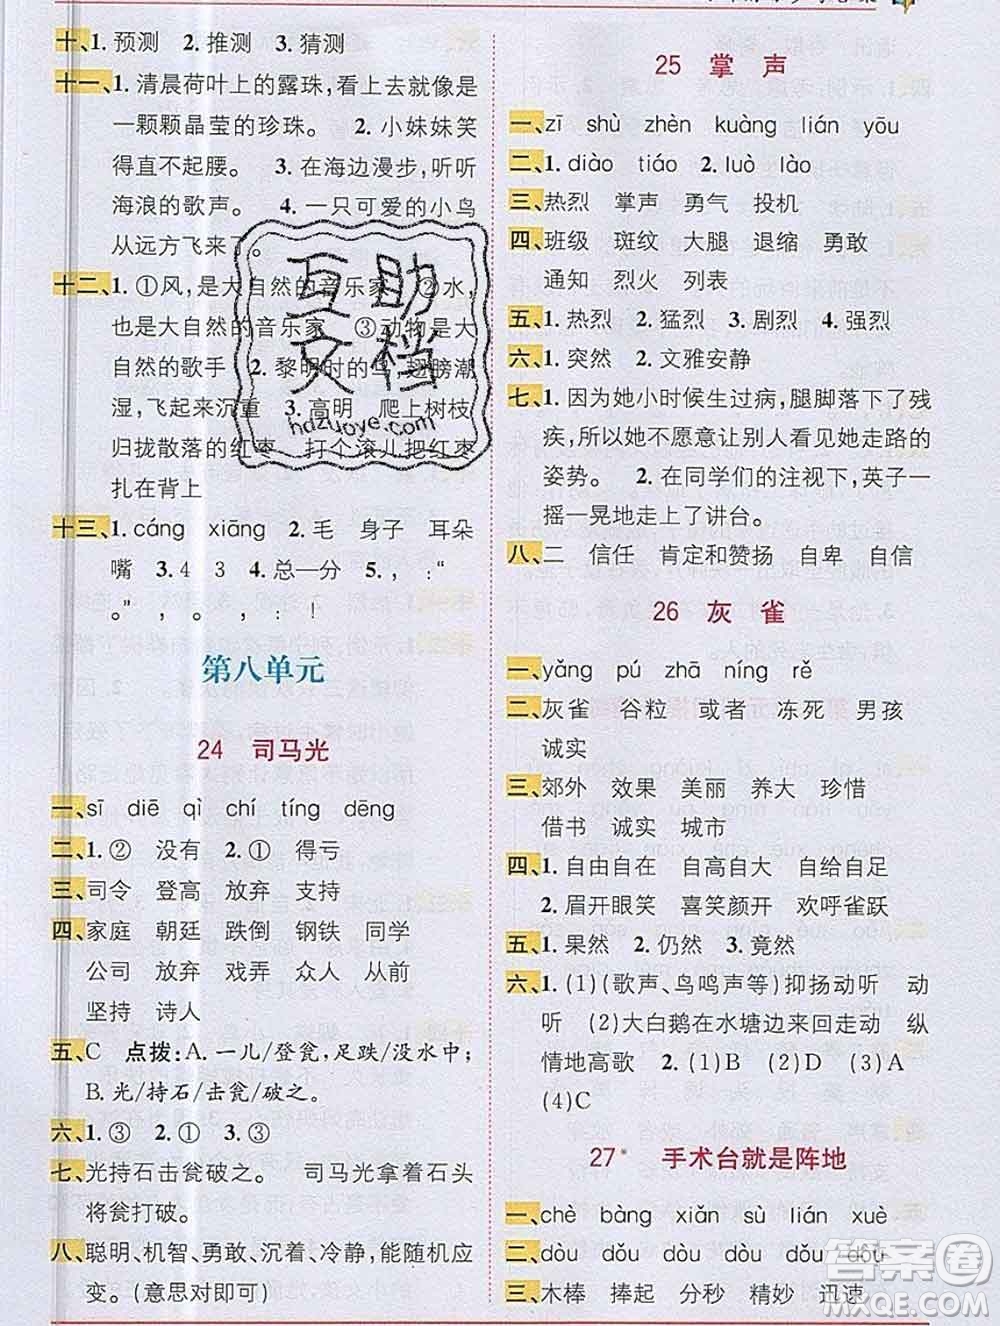 十、1. 预测　2. 推测　3. 猜测
十一、1. 清晨荷叶上的露珠,看上去就像是
一颗颗晶莹的珍珠。　2. 小妹妹笑
得直不起腰。　3. 在海边漫步,听听
海浪的歌声。　4. 一只可爱的小鸟
从远方飞来了。
十二、1. ①风,是大自然的音乐家　②水,
也是大自然的音乐家　③动物是大
自然的歌手　2. 黎明时的鸟,翅膀潮
湿,飞起来沉重　3. 高明　爬上树枝
归拢散落的红枣　打个滚儿把红枣
扎在背上
十三、1. cáng　xiāng　2. 毛　身子　耳朵
嘴　3. 4　3　4. 总—分　5. ，：“
。”　，　。　！
第八单元
24　司马光
一、sī　diē　qì　chí　tíng　dēng
二、1. ②　没有　2. ①　得亏
三、司令　登高　放弃　支持
四、家庭　朝廷　跌倒　钢铁　同学
公司　放弃　弄戏　众人　从前
坚持　诗人
五、C　点拨：A. 一儿/登瓮,足跌/没水中；
B. 光/持石/击瓮/破之。
六、1. ③　2. ①　3. ③
七、光持石击瓮破之。　司马光拿着石头
将瓮打破。
八、聪明、机智、勇敢、沉着、冷静,能随机应
变。(意思对即可)
25　掌　声
一、zī　shù　zhèn　kuàng　lián　yōu
二、1. diào　tiáo　2. luò　lào
三、热烈　掌声　勇气　投机
四、班级　斑纹　大腿　退缩　勇敢
通知　烈火　列表
五、1. 热烈　2. 猛烈　3. 剧烈　4. 强烈
六、1. 突然　2. 文雅安静
七、1. 因为她小时候生过病,腿脚落下了残
疾,所以她不愿意让别人看见她走路的
姿势。　2. 在同学们的注视下,英子一
摇一晃地走上了讲台。
八、二　信任　肯定和赞扬　自卑　自信
26　灰　雀
一、yǎng　pú　zhā　níng　rě
二、灰雀　谷粒　或者　冻死　男孩
诚实
三、郊外　效果　美丽　养大　珍惜
借书　诚实　城市
四、1. 自由自在　自高自大　自给自足
2. 眉开眼笑　喜笑颜开　欢呼雀跃
五、1. 果然　2. 仍然　3. 竟然
六、1. (1)(歌声、鸟鸣声等)抑扬动听　动
听　(2)大白鹅在水塘边来回走动　纵
情地高歌　2. (1)B　(2)D　(3)A
(4)C
27*　手术台就是阵地
一、chè　bàng　xiǎn　sù　lián　xuè
二、dòu　dǒu　dòu　dǒu　dòu　dòu
三、木棒　捧起　分秒　精妙　迅速
互助
文档
hdzuoye.com
答案圈
MXQE.COM